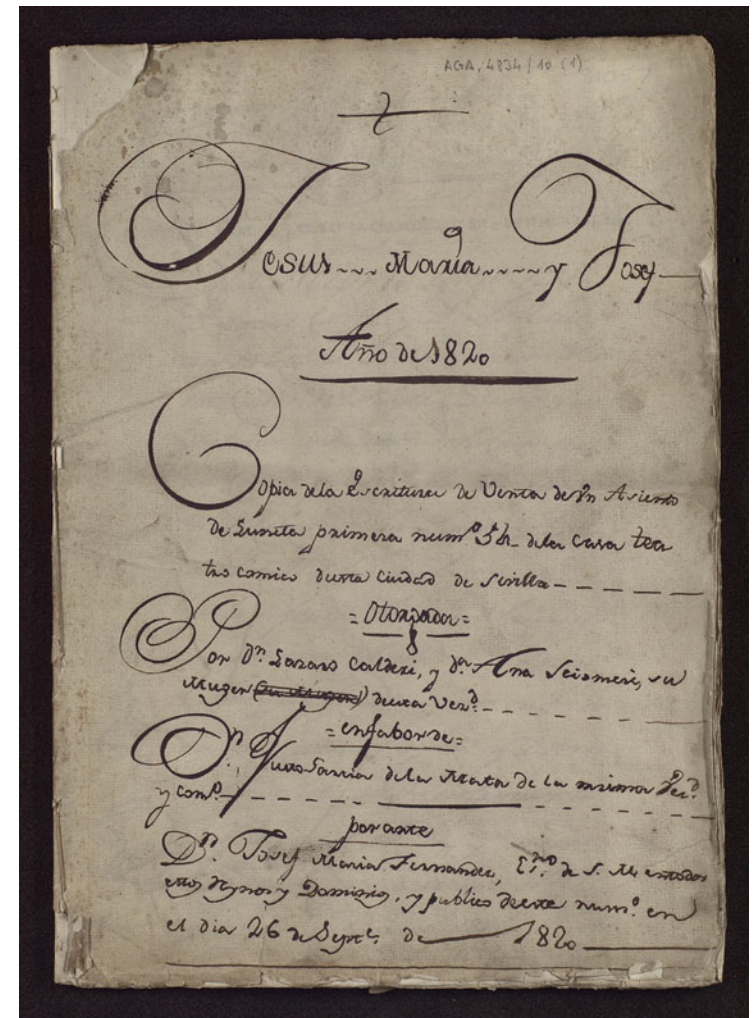 AGA, 4834/10 (1)
Jesus Maria y Josef
Año de 1820
Copia dela Escritura de Venta de Vn Asiento
de Luneta primera num.º 54 dela Casa tea
tro comico desta Ciudad de Sevilla
= Otorgada =
Por D.n Lazaro Calderi, y d.ª Ana su
Muger desta Vez.d
= enfabor de =
D.n Justo Garcia dela Mata de la misma Vez.d
y comº
por ante
D.n Josef Maria Fernandez, de S. M. entodos
Reynos y Dominios, y publico deeste num.º en
el dia 26 de Sept.e de 1820